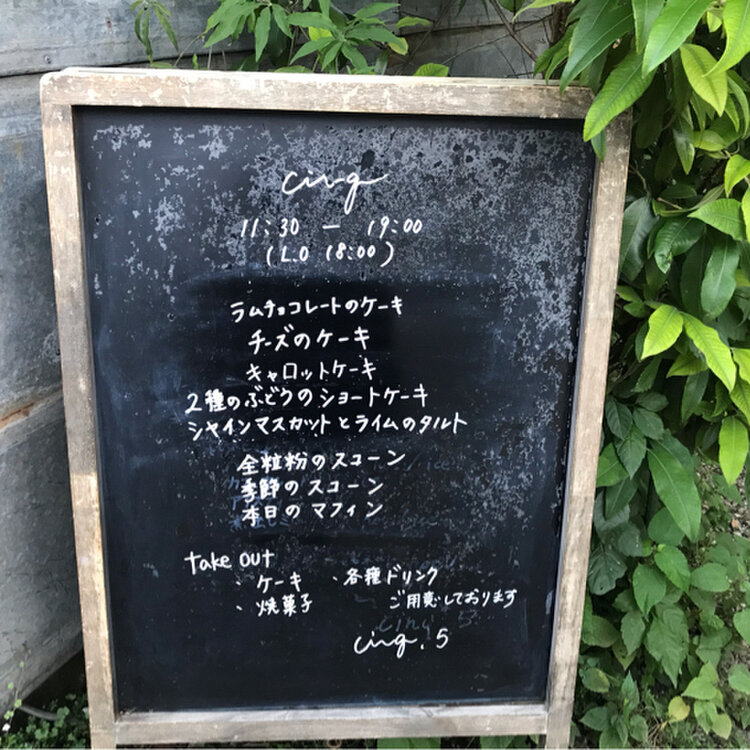 cinq
11:30 – 19:00
(L.O 18:00)
ラムチョコレートのケーキ
チーズのケーキ
キャロットケーキ
2種のぶどうのショートケーキ
シャインマスカットとライムのタルト
全粒粉のスコーン
季節のスコーン
本日のマフィン
take out
・ケーキ ・各種ドリンク
・焼菓子 ご用意しております
cinq.5